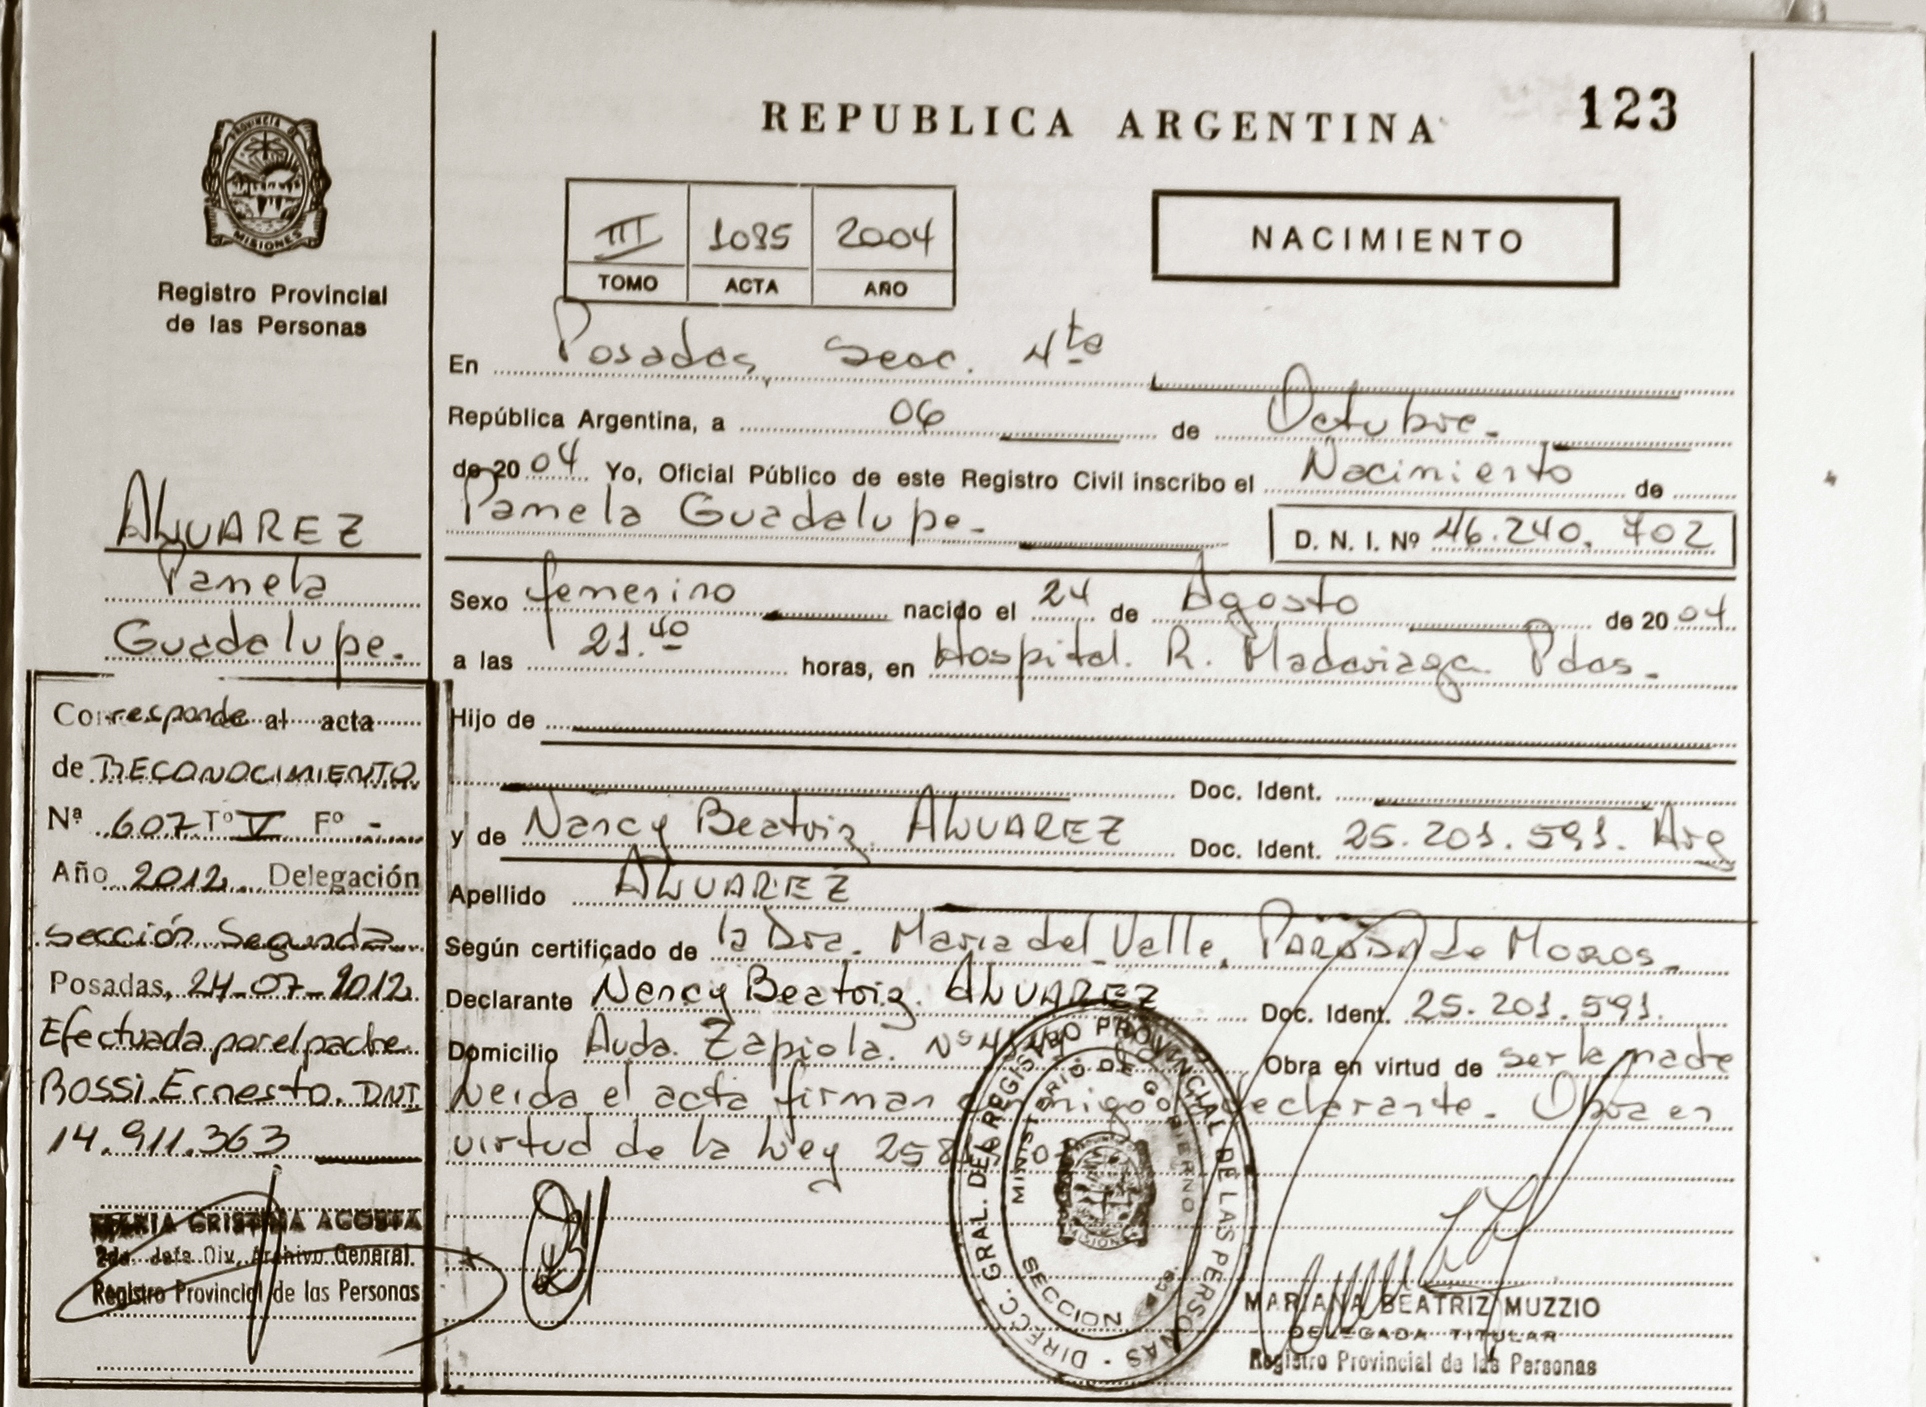 REPUBLICA ARGENTINA 123
PROVINCIA DE
MISIONES
Registro Provincial
de las Personas
III 1085 2004
TOMO ACTA AÑO
NACIMIENTO
En Posadas, Secc. 4ta
República Argentina, a 06 de Octubre.-
de 20 04 Yo, Oficial Público de este Registro Civil inscribo el Nacimiento de
Pamela Guadalupe.-
D. N. I. Nº 46.240.702
Sexo femenino nacido el 24 de Agosto de 20 04
a las 21.40 horas, en Hospital. R. Madariaga. Pdas.-
Hijo de
Doc. Ident.
y de Nancy Beatriz ALVAREZ Doc. Ident. 25.201.591. Arg
Apellido ALVAREZ
Según certificado de la Dra. Maria del Valle, de Moros.-
Declarante Nancy Beatriz. ALVAREZ Doc. Ident. 25.201.591.
Domicilio Avda. Zapiola. Nº Obra en virtud de ser la madre
Leida el acta firman declarante.- Obra en
virtud de la Ley
ALVAREZ
Pamela
Guadalupe.-
Corresponde al acta
de RECONOCIMIENTO
Nª 607 Tº V Fº -
Año 2012. Delegación
Sección Segunda
Posadas, 24-07-2012.
Efectuada por el padre
ROSSI Ernesto. DNI
14.911.363
MARIA CRISTINA ACOSTA
2da. Jefa Div. Archivo General
Registro Provincial de las Personas
DIRECC. GRAL. DEL REGISTRO PROVINCIAL DE LAS PERSONAS
MINISTERIO DE GOBIERNO
MISIONES
SECCION
MARIANA BEATRIZ MUZZIO
DELEGADA TITULAR
Registro Provincial de las Personas